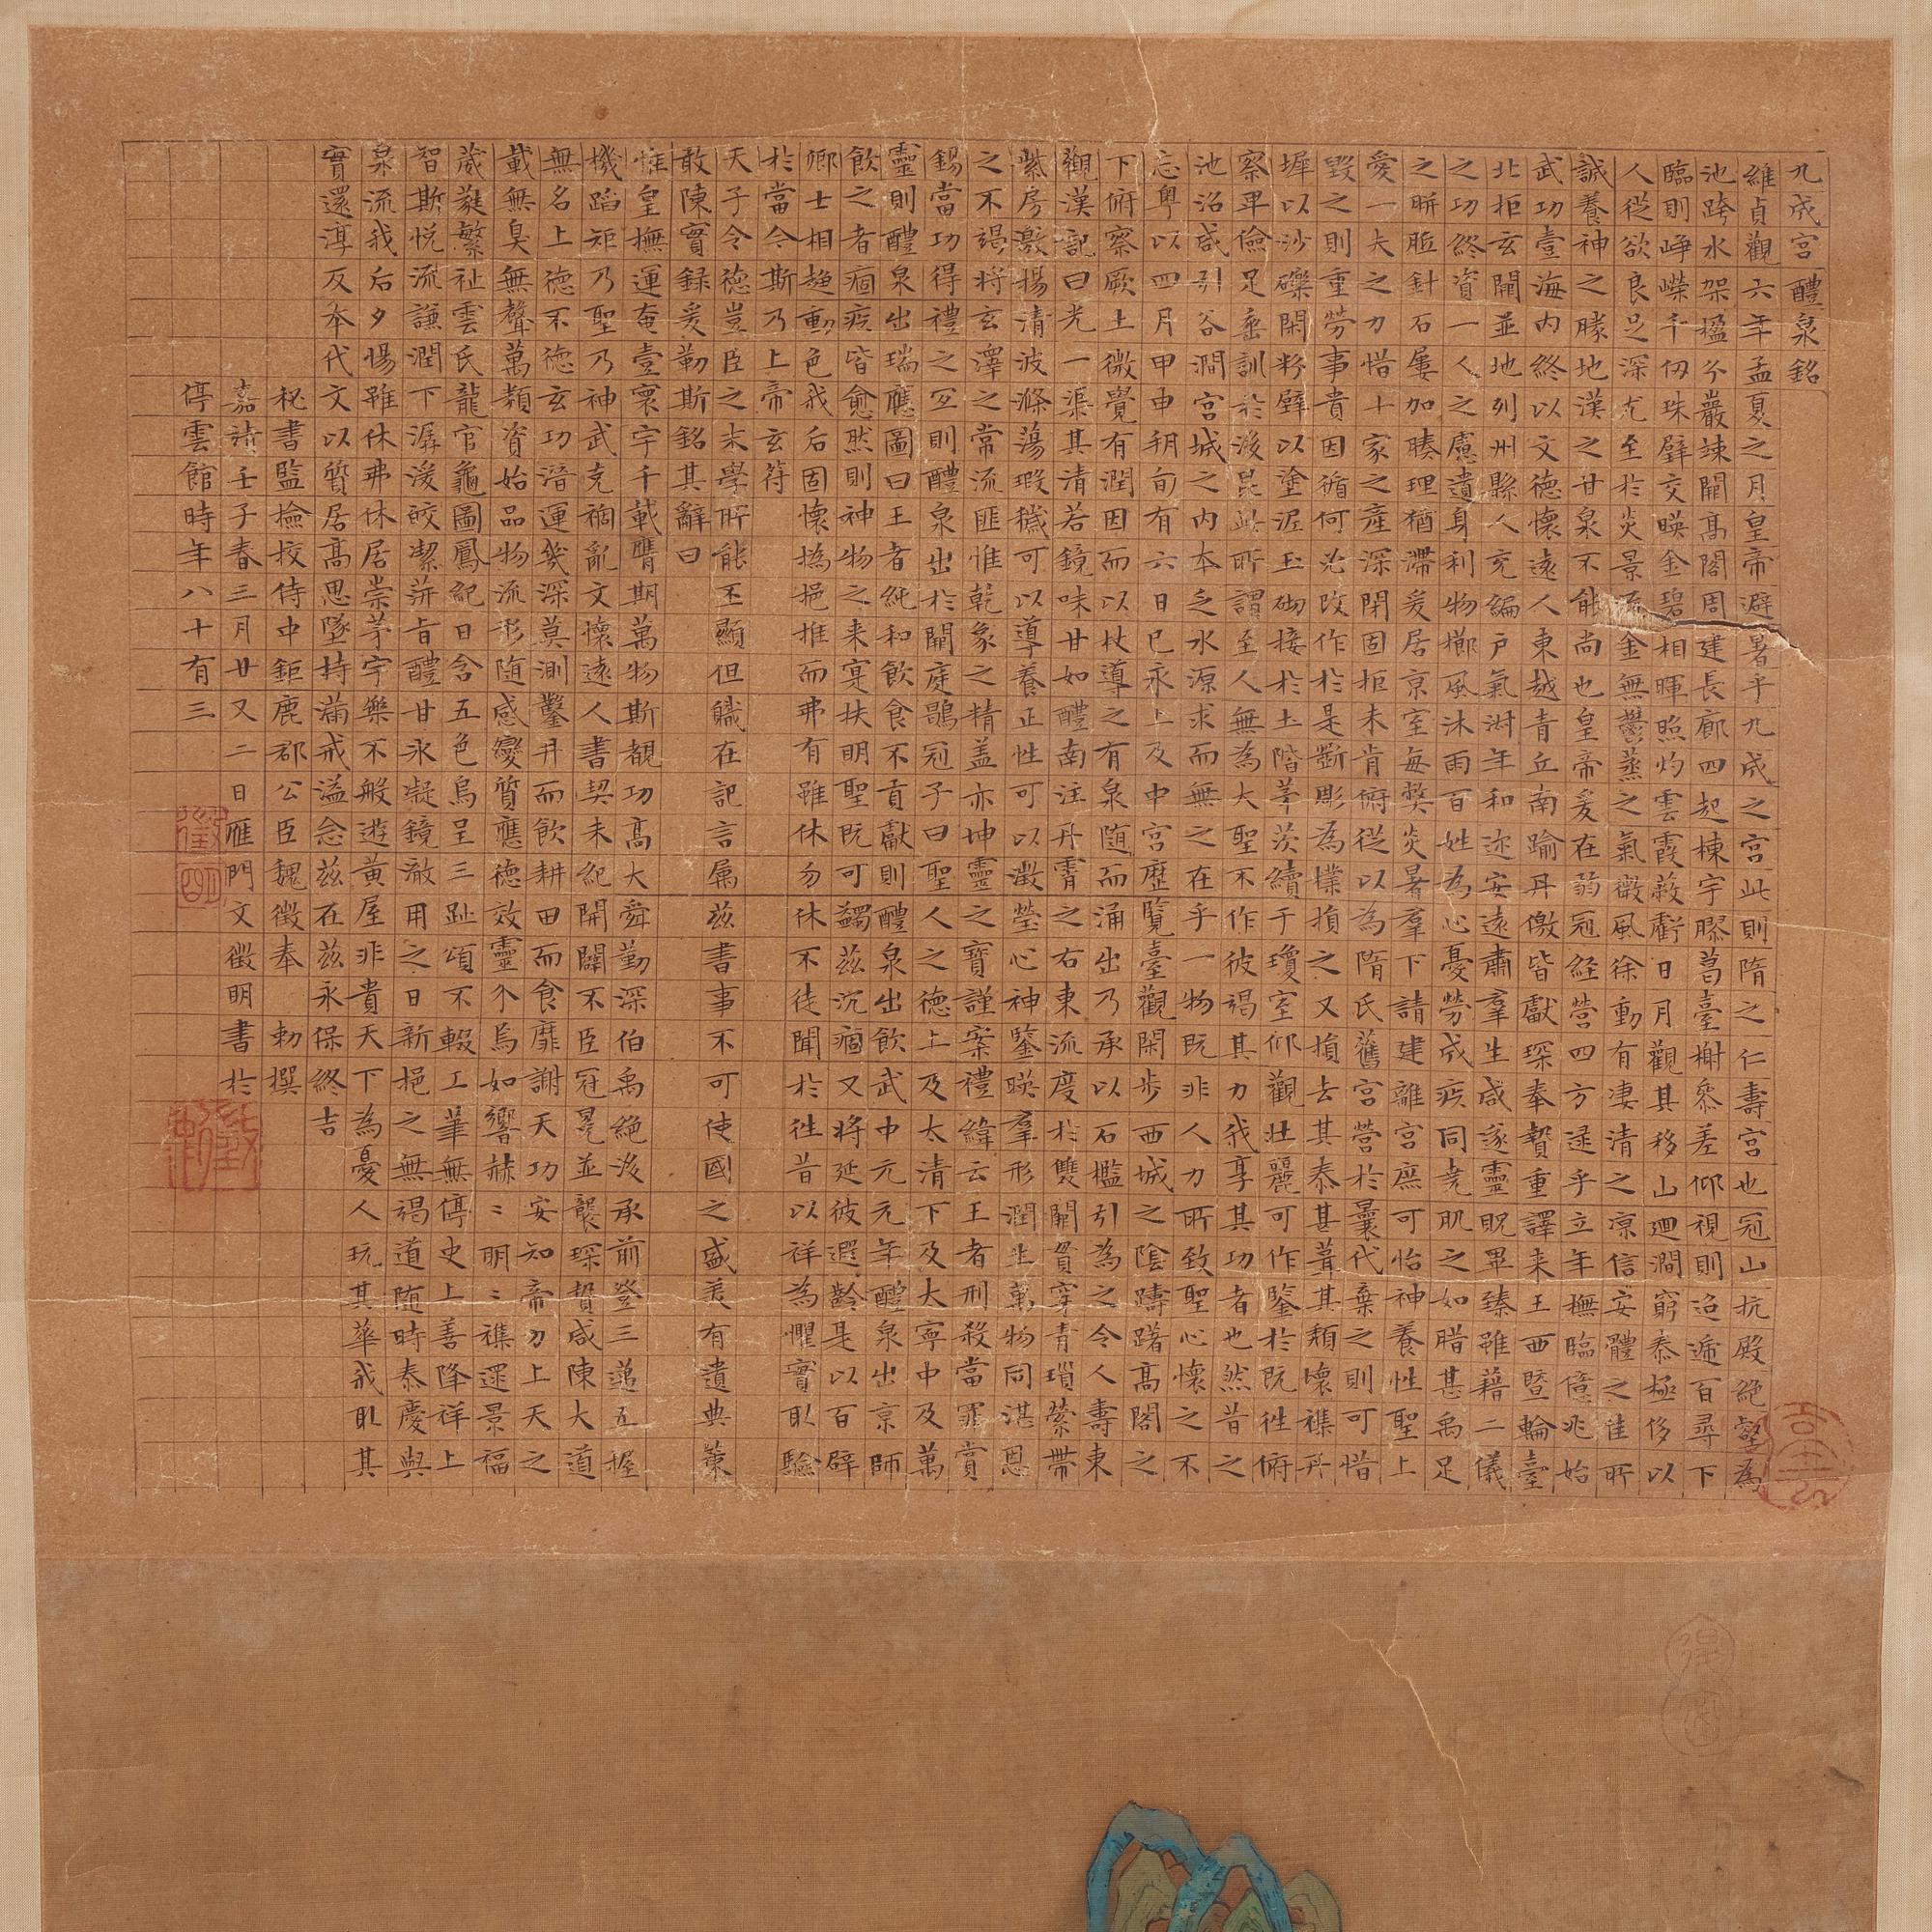 九成宮醴泉銘
維貞觀六年孟夏之月皇帝避暑乎九成之宮此則隋之仁壽宮也冠山抗殿絕壑為
池跨水架楹分巖竦闕高閣周建長廊四起棟宇膠葛臺榭參差仰視則迢遞百尋下
臨則崢嶸千仞珠璧交暎金碧相暉照灼雲霞蔽虧日月觀其移山迴澗窮泰極侈以
人從欲良足深尤至於炎景流金無鬱蒸之氣微風徐動有淒清之涼信安體之佳所
誠養神之勝地漢之甘泉不能尚也皇帝爰在弱冠經營四方逮乎立年撫臨億兆始
武功壹海內終以文德懷遠人東越青丘南踰丹儌皆獻琛奉贄重譯来王西暨輪臺
北拒玄闕並地列州縣人充編戶氣淑年和迩安遠肅羣生咸遂靈貺畢臻雖藉二儀
之功終資一人之慮遺身利物櫛風沐雨百姓為心憂勞成疾同堯肌之如腊甚禹足
之胼胝針石屢加腠理猶滯爰居京室每弊炎暑羣下請建離宮庶可怡神養性聖上
愛一夫之力惜十家之產深閉固拒未肯俯從以為隋氏舊宮營於曩代棄之則可惜
毀之則重勞事貴因循何必改作於是斲彫為樸損之又損去其泰甚葺其頹壞襍丹
墀以沙礫間粉壁以塗泥玉砌接於土階茅茨續于瓊室仰觀壯麗可作鑒於既往俯
察卑儉足垂訓於後昆此所謂至人無為大聖不作彼竭其力我享其功者也然昔之
池沼咸引谷澗宮城之內本乏水源求而無之在乎一物既非人力所致聖心懷之不
忘粵以四月甲申朔旬有六日巳永上及中宮歷覽臺觀閑步西城之陰躊躇高閣之
下俯察厥土微覺有潤因而以杖導之有泉随而涌出乃承以石檻引為之令人壽東
觀漢記曰光一渠其清若鏡味甘如醴南注丹霄之右東流度於雙闕貫穿青瑣縈帶
紫房激揚清波滌蕩瑕穢可以導養正性可以澂瑩心神鑒暎羣形潤生萬物同湛恩
之不竭將玄澤之常流匪惟乾象之精蓋亦坤靈之寶謹案禮緯云王者刑殺當罪賞
錫當功得禮之宜則醴泉出於闕庭鶡冠子曰聖人之德上及太清下及大寧中及萬
靈則醴泉出瑞應圖曰王者純和飲食不貢獻則醴泉出飲武中元元年醴泉出京師
飲之者痼疾皆愈然則神物之来寔扶明聖既可蠲茲沉痼又將延彼遐齡是以百辟
卿士相趨動色我后固懷撝挹推而弗有雖休勿休不徒聞於往昔以祥為懼實取驗
於當今斯乃上帝玄符
天子令德豈臣之末學所能丕顯但職在記言屬茲書事不可使國之盛美有遺典策
敢陳實録爰勒斯銘其辭曰
惟皇撫運奄壹寰宇千載膺期萬物斯覩功高大舜勤深伯禹絕後承前登三邁五握
機蹈矩乃聖乃神武克禍亂文懷遠人書契未紀開闢不臣冠冕並襲琛贄咸陳大道
無名上德不德玄功潛運幾深莫測鑿井而飲耕田而食靡謝天功安知帝力上天之
載無臭無聲萬類資始品物流形随感變質應德效靈介焉如響赫〻明〻襍遝景福
葳蕤繁祉雲氏龍官龜圖鳳紀日含五色烏呈三趾頌不輟工筆無停史上善降祥上
智斯悅流謙潤下潺湲皎潔蓱旨醴甘氷凝鏡澈用之日新挹之無竭道随時泰慶與
泉流我后夕惕雖休弗休居崇茅宇樂不般遊黃屋非貴天下為憂人玩其華我取其
實還淳反本代文以質居高思墜持滿戒溢念茲在茲永保終吉
秘書監撿挍侍中鉅鹿郡公臣魏徵奉 勅撰
嘉靖壬子春三月廿又二日雁門文徵明書於
停雲館時年八十有三
徵明